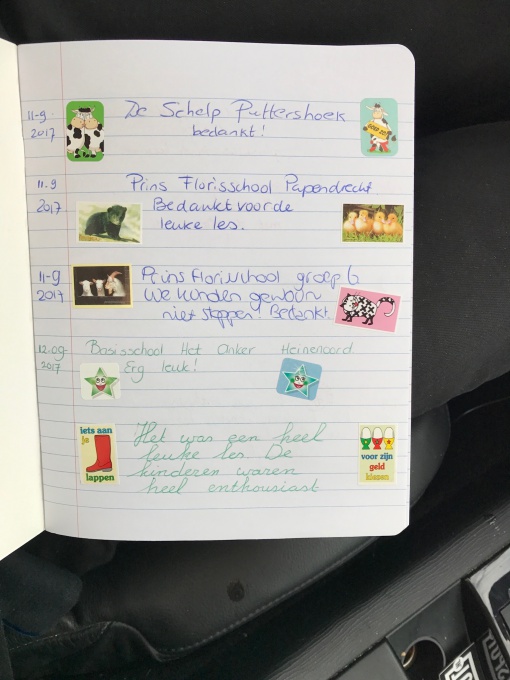 11-9 De Schelp Puttershoek
2017 bedankt!
11-9 Prins Florisschool Papendrecht
2017 Bedankt voor de
leuke les.
11-9 Prins Florisschool groep 6
2017 We konden gewoon
niet stoppen! Bedankt
12-09 Basisschool Het Anker Heinenoord
2017 Erg leuk!
iets aan
je
lappen
Het was een heel
leuke les. De
kinderen waren
heel enthousiast
voor zijn
geld
kiezen